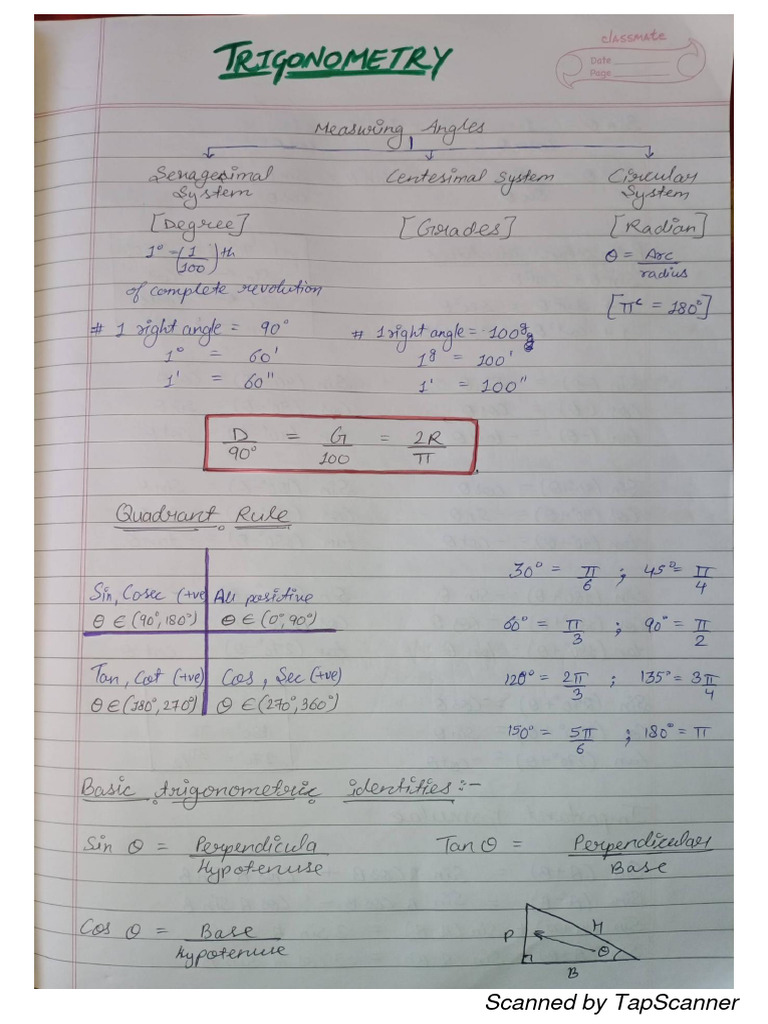 TRIGONOMETRY
classmate
Date
Page
Measuring Angles
Sexagesimal System
Centesimal System
Circular System
[Degree]
[Grades]
[Radian]
1° = (1/100)th
of complete revolution
θ = Arc/radius
[π^c = 180°]
# 1 right angle = 90°
1° = 60'
1' = 60"
# 1 right angle = 100g
1g = 100'
1' = 100"
D/90° = G/100 = 2R/π
Quadrant Rule
Sin, Cosec (+ve)
θ ∈ (90°, 180°)
All positive
θ ∈ (0°, 90°)
Tan, Cot (+ve)
θ ∈ (180°, 270°)
Cos, Sec (+ve)
θ ∈ (270°, 360°)
30° = π/6 ; 45° = π/4
60° = π/3 ; 90° = π/2
120° = 2π/3 ; 135° = 3π/4
150° = 5π/6 ; 180° = π
Basic trigonometric identities :-
Sin θ = Perpendicula/Hypotenuse
Tan θ = Perpendicular/Base
Cos θ = Base/Hypotenuse
P
H
θ
B
Scanned by TapScanner